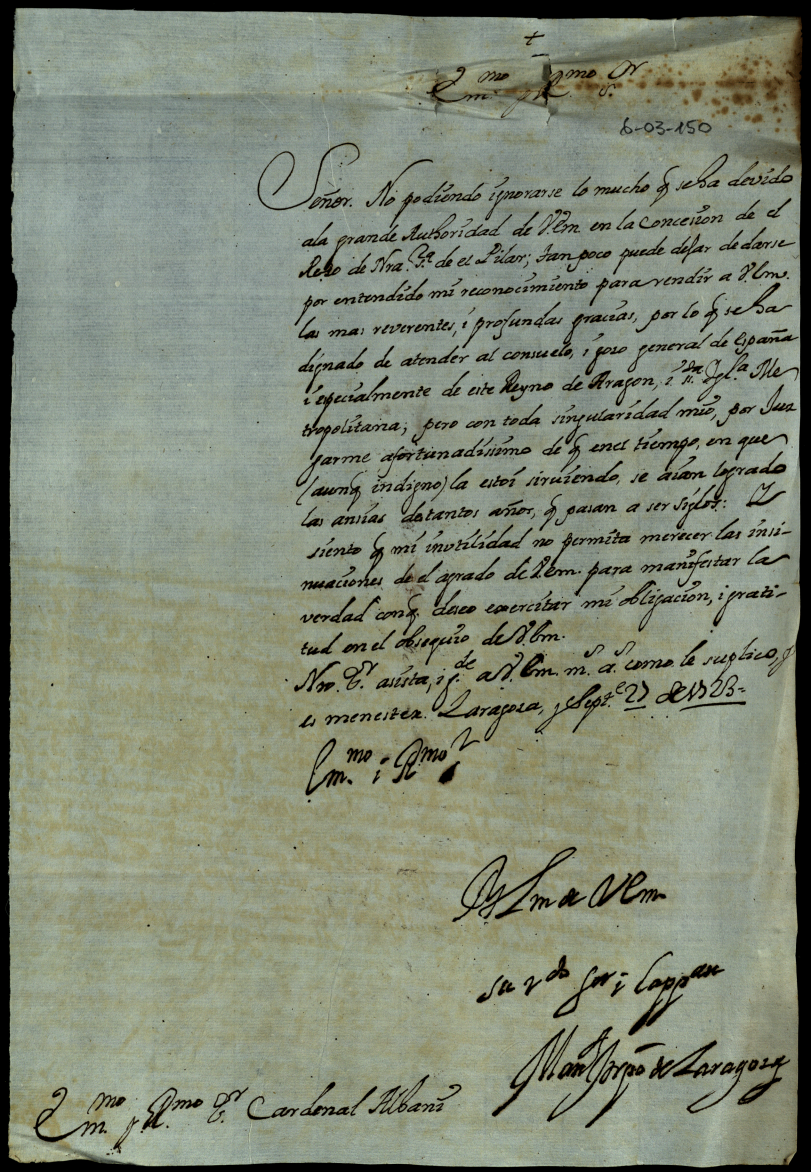 +
Em.mo y R.mo S.or
6-03-150
Señor. No podiendo ignorarse lo mucho q̃ se ha devido
a la grande Authoridad de V.Em. en la Concession de el
Rezo de Nra. S.a de el Pilar; tanpoco puede dejar de darse
por entendido mi reconocimiento para rendir a V.Em.
las mas reverentes, i profundas gracias, por lo q̃ se ha
dignado de atender al consuelo, i gozo general de España
i especialmente de este Reyno de Aragon, i Igl.a Me
tropolitana; pero con toda singularidad mio, por Juz
garme afortunadissimo de q̃ en el tiempo, en que
(aunq̃ indigno) la estoi sirviendo, se aian logrado
las ansias de tantos años, q̃ pasan a ser siglos: Y
siento q̃ mi inutilidad no permita merecer las insi-
nuaciones de el agrado de V.Em. para manifestar la
verdad conq̃ deseo exercitar mi obligacion, i grati-
tud en el obsequio de V.Em.
Nro. S.r asista, i g.de a V.Em. m.s a.s como le suplico, y
es menester. Zaragoza, y Sept.e 27 de 1723=
Em.mo i R.mo S.r
B L m de V Em
su r.do ser i Cappan
Man.l Arpo de Zaragoza
Em.mo y R.mo S.or Cardenal Albani